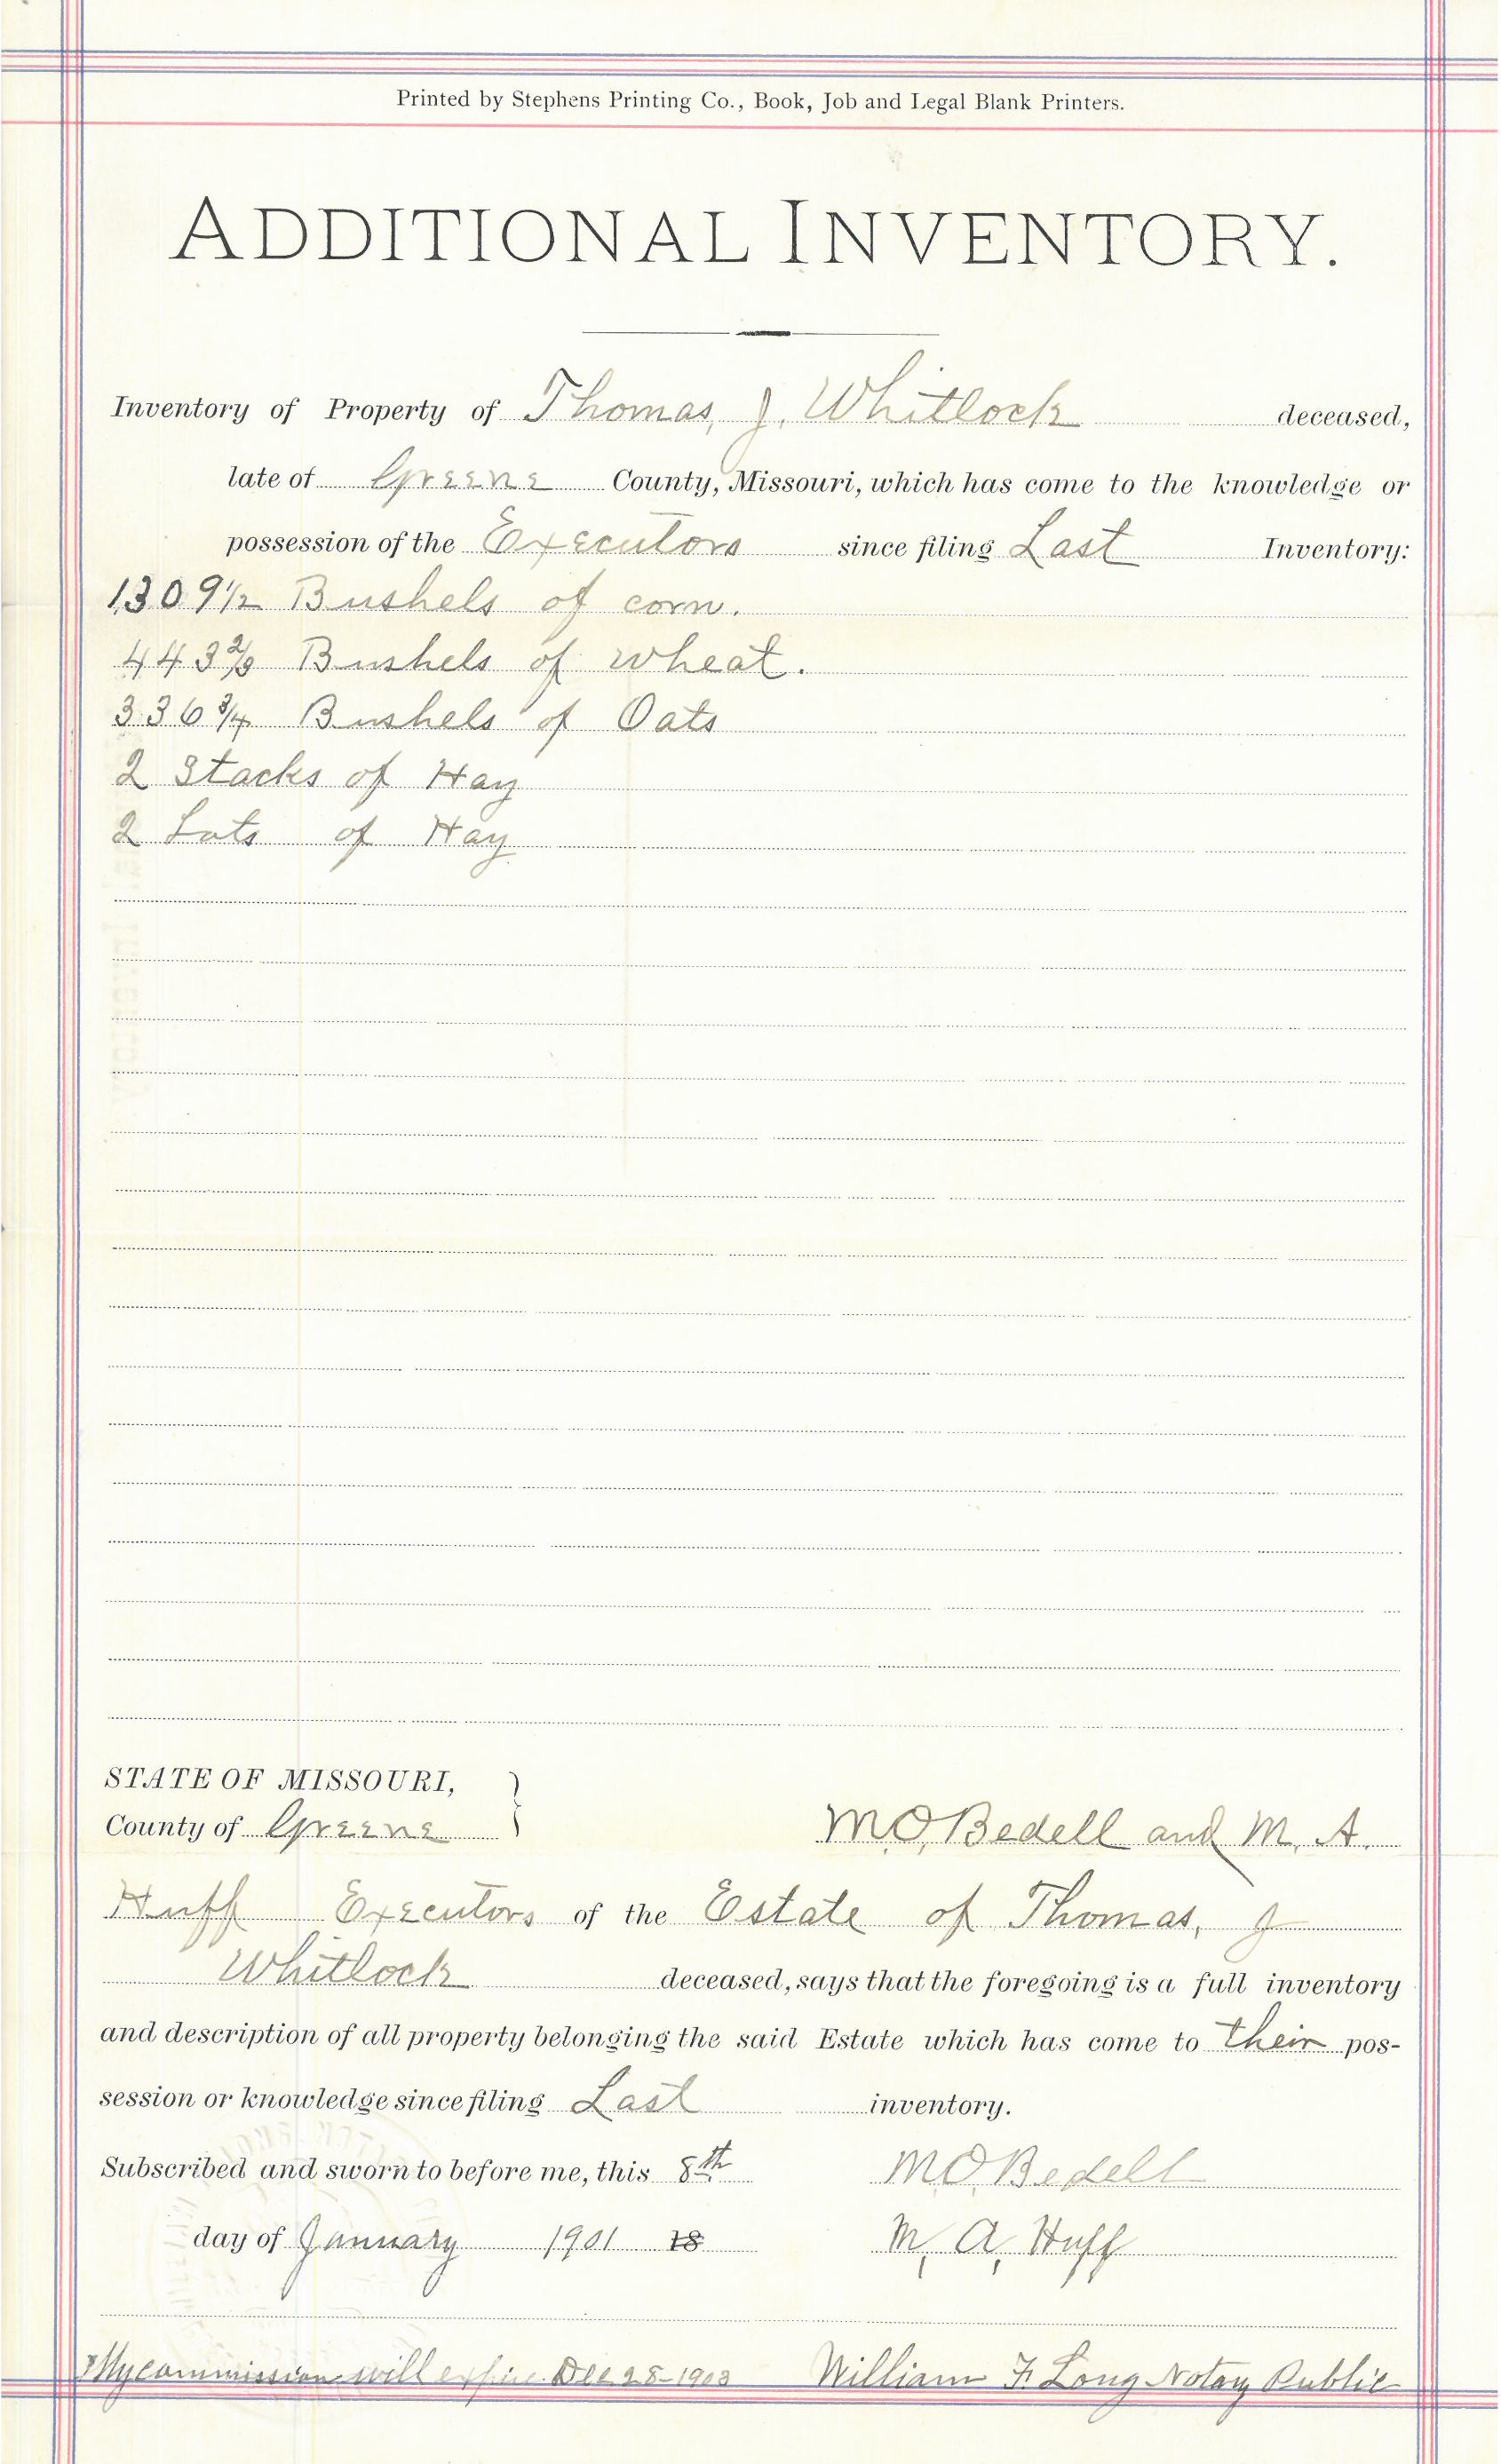 Printed by Stephens Printing Co., Book, Job and Legal Blank Printers.
ADDITIONAL INVENTORY.
Inventory of Property of Thomas, J. Whitlock deceased,
late of Greene County, Missouri, which has come to the knowledge or
possession of the Executors since filing Last Inventory:
1309 1/2 Bushels of corn.
443 2/3 Bushels of wheat.
336 3/4 Bushels of Oats
2 Stacks of Hay
2 Lots of Hay
STATE OF MISSOURI,
County of Greene } M. O. Bedell and M. A.
Huff Executors of the Estate of Thomas, J
Whitlock deceased, says that the foregoing is a full inventory
and description of all property belonging the said Estate which has come to their pos-
session or knowledge since filing Last inventory.
Subscribed and sworn to before me, this 8th M. O. Bedell
day of January 1901 18 M, A, Huff
My commission will expire Dec 28-1903 William F. Long Notary Public